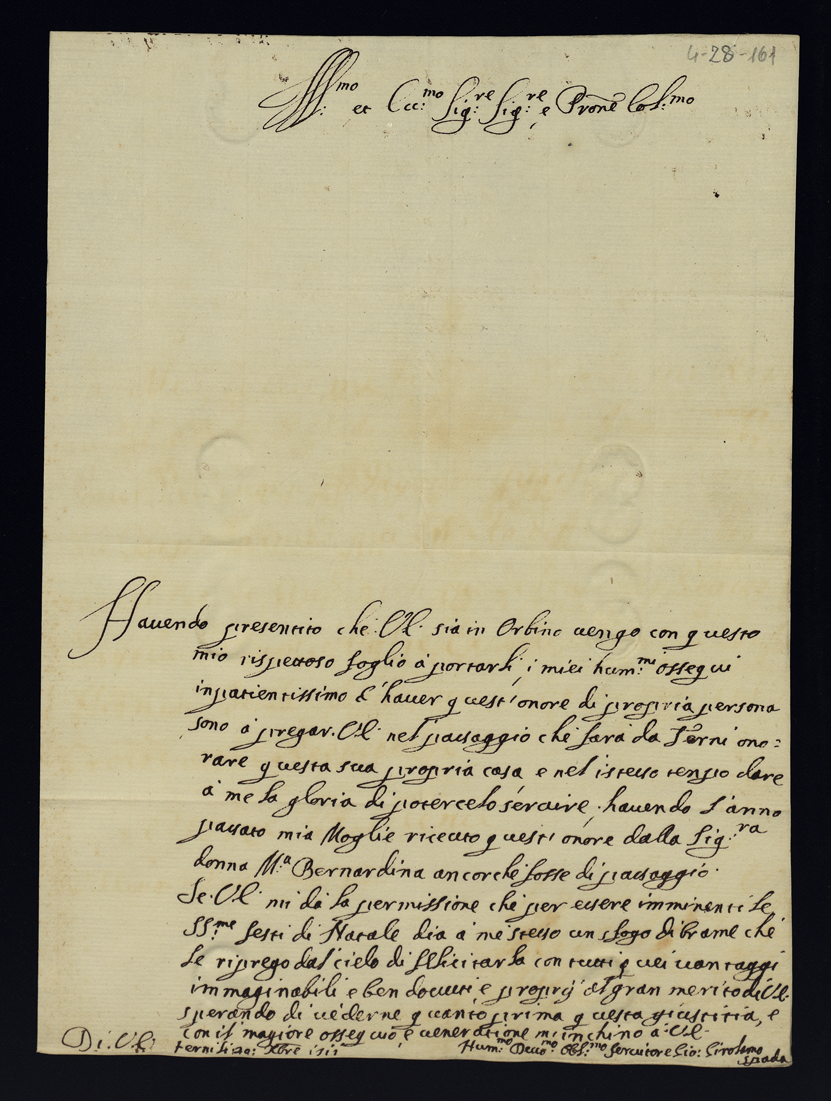 4-28-161
Ill:mo et Ecc:mo Sig:re Sig:re e Prone Col:mo
Havendo presentito che V.E. sia in Orbino vengo con questo
mio rispettoso foglio à portarli i miei hum:mi ossequi
inpatientissimo d'haver quest'onore di propria persona
sono à pregar V.E. nel passaggio che farà da Terni ono=
rare questa sua propria casa e nel istesso tenpo dare
à me la gloria di potercelo servire, havendo l'anno
passato mia Moglie riceuto quest'onore dalla Sig:ra
donna M:a Bernardina ancorche fosse di passaggio.
Se V.E. mi dà la permissione che per essere imminenti le
SS:me festi di Natale dia a me stesso un sfogo di brame che
le riprego dal cielo di fellicitarla con tutti quei vantaggi
immaginabili e ben dovuti, e proprij al gran merito di V.E.
sperando di vederne quanto prima questa giustitia, e
con il magiore ossequio, e veneratione m'inchino à V.E.
Di V.E.
Terni li Xbre
Hum:mo Devo:mo Obl:mo Servitore Gio: Girolamo
Spada